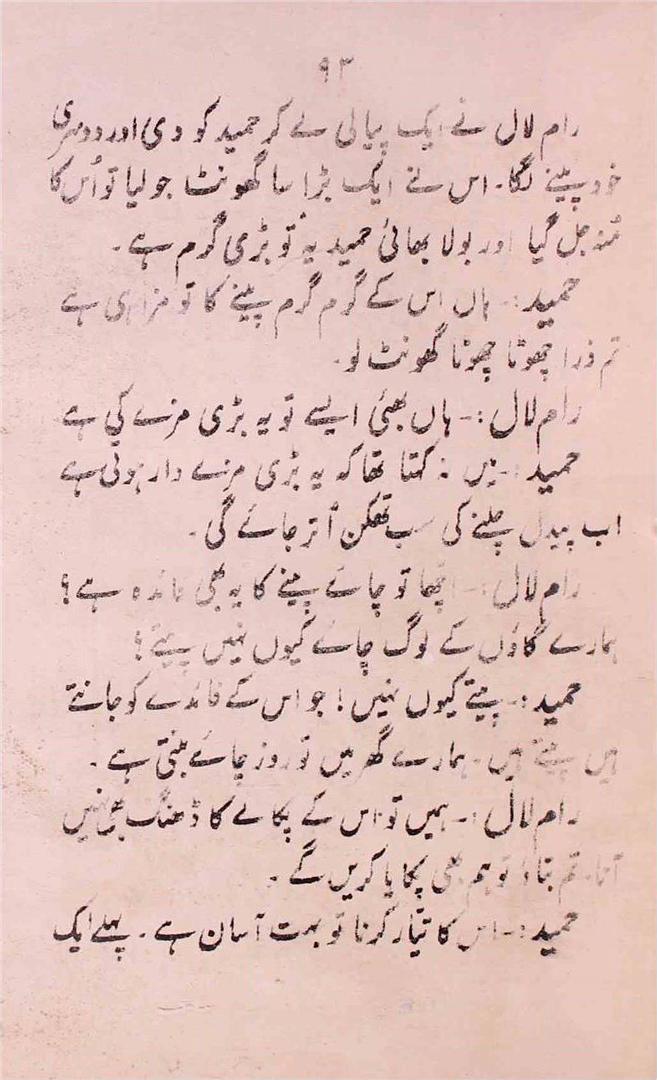 ۹۳
رام لال نے ایک پیالی لے کر حمید کو دی اور دوسری
خود پینے لگا۔ اس نے ایک بڑا سا گھونٹ جو لیا تو اُس کا
مُنہ جل گیا اور بولا بھائی حمید یہ تو بڑی گرم ہے۔
حمید :۔ ہاں اس کے گرم گرم پینے کا تو مزا ہی ہے
تم ذرا چھوٹا چھوٹا گھونٹ لو۔
رام لال :۔ ہاں بھئی ایسے تو یہ بڑی مزے کی ہے
حمید :۔ میں نہ کہتا تھا کہ یہ بڑی مزے دار ہوتی ہے
اب پیدل چلنے کی سب تھکن اُتر جائے گی۔
رام لال :۔ اچھا تو چائے پینے کا یہ بھی فائدہ ہے؟
ہمارے گاؤں کے لوگ چائے کیوں نہیں پیتے؟
حمید :۔ پیتے کیوں نہیں! جو اس کے فائدے کو جانتے
ہیں پیتے ہیں۔ ہمارے گھر میں تو روز چائے بنتی ہے۔
رام لال :۔ ہمیں تو اس کے پکانے کا ڈھنگ بھی نہیں
آتا۔ تم بتاؤ تو ہم بھی پکایا کریں گے۔
حمید :۔ اس کا تیار کرنا تو بہت آسان ہے۔ پہلے ایک